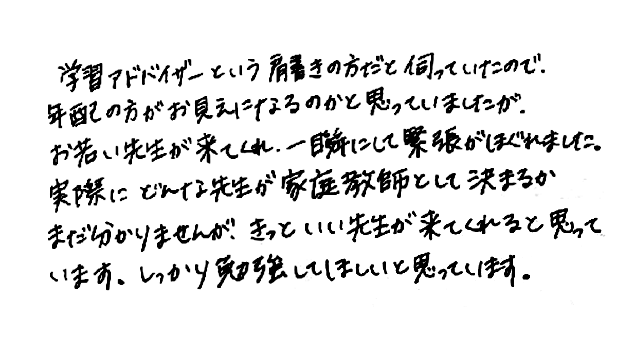 学習アドバイザーという肩書きの方だと伺っていたので、
年配の方がお見えになるのかと思っていましたが、
お若い先生が来てくれ、一瞬にして緊張がほぐれました。
実際にどんな先生が家庭教師として決まるか
まだ分かりませんが、きっといい先生が来てくれると思って
います。しっかり勉強してほしいと思っています。